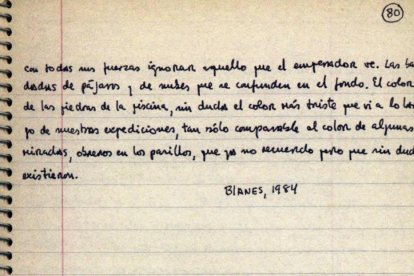 80
con todas sus fuerzas ignorar aquello que el emperador ve. Las ban
dadas de pájaros y de nubes que se confunden en el fondo. El color
de las piedras de la piscina, sin duda el color más triste que vi a lo lar
go de nuestras expediciones, tan sólo comparable al color de algunas
miradas, obreros en los pasillos, que ya no recuerdo pero que sin duda
existieron.
BLANES, 1984